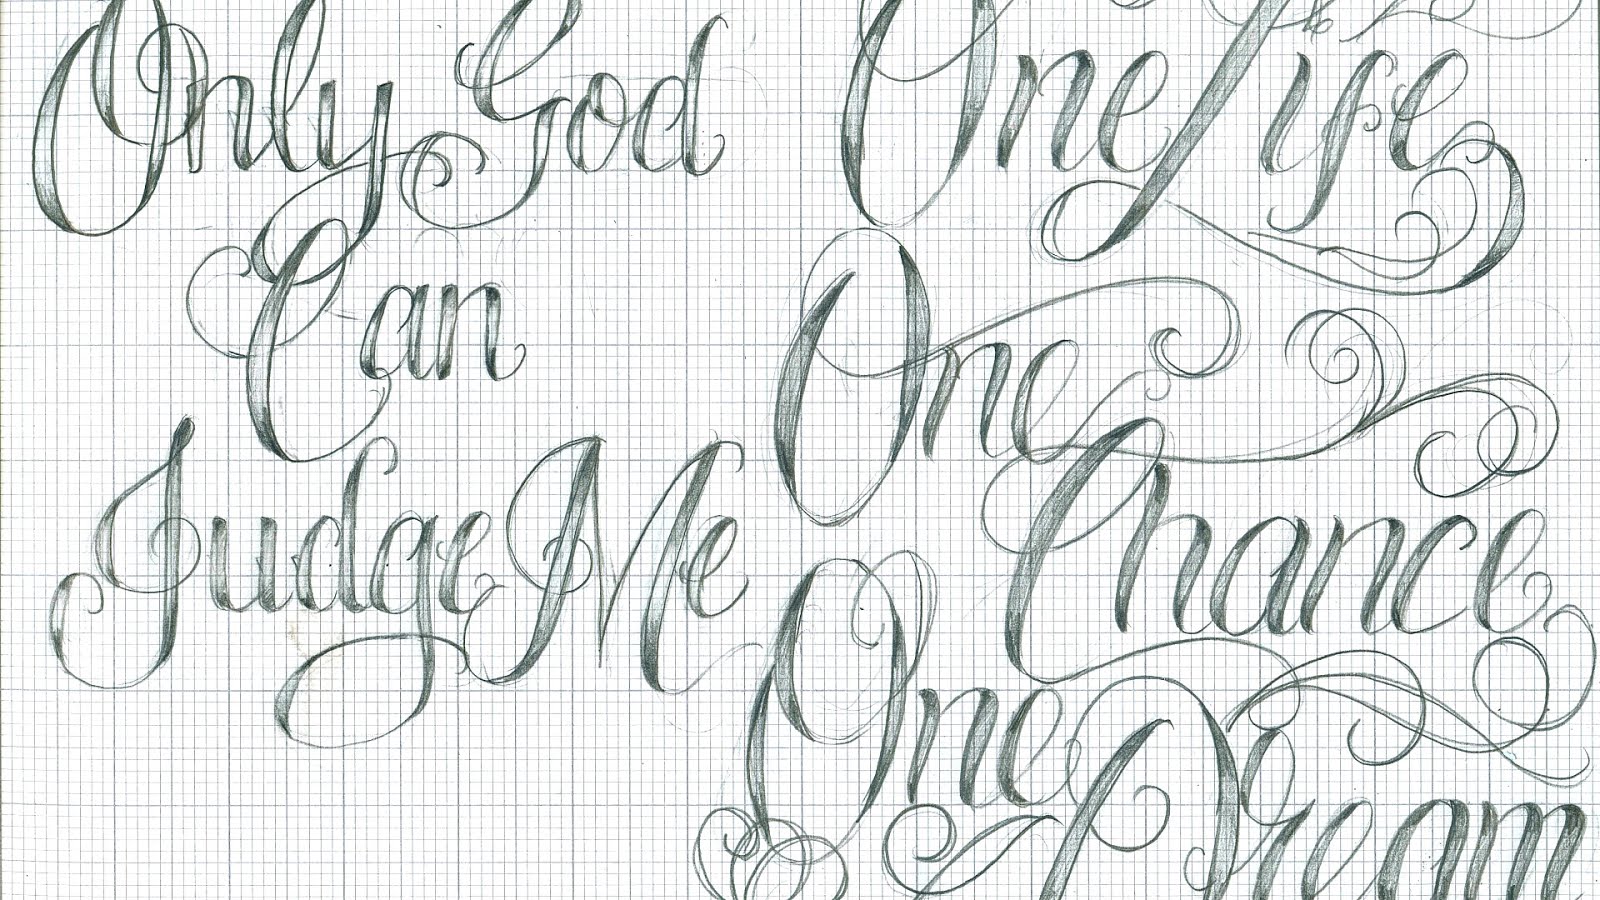 Only God
Can
Judge Me
One Life
One
Chance
One
Dream